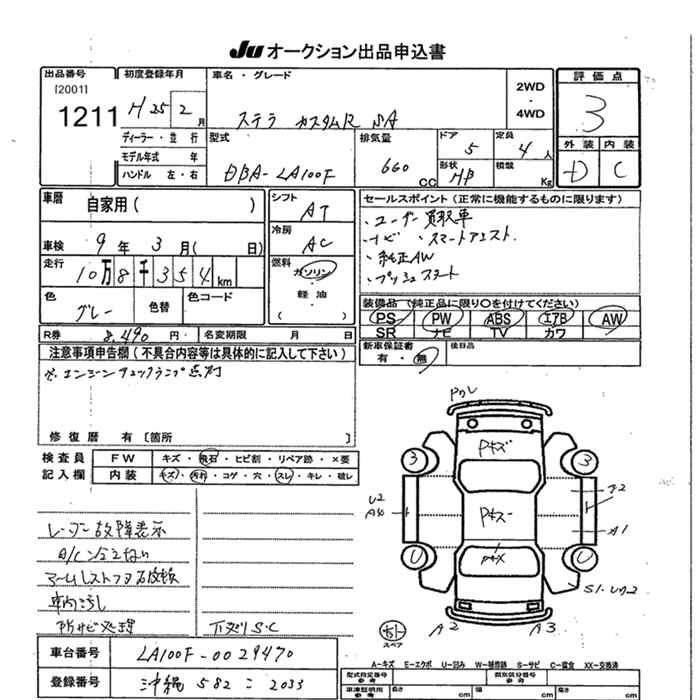 JU オークション出品申込書
出品番号 初度登録年月 車名・グレード 2WD・4WD 評価点
[2001]
1211 H 25 2月 ステラ カスタムR SA 3
ディーラー・並行 型式 排気量 ドア 5 定員 4人 外装 内装
モデル年式 年 DBA-LA100F 660cc 形状 HB 積載 Kg D C
ハンドル 左・右
車歴 自家用( ) シフト AT セールスポイント(正常に機能するものに限ります)
車検 9年 3月( 日) 冷房 AC ・ユーザー買取車
・ナビ ・スマートアシスト.
走行 10万8千354km 燃料 ガソリン・軽油・( ) ・純正AW
・プッシュスタート
色 グレー 色替 色コード 装備品(純正品に限り○を付けてください)
PS PW ABS エアB AW
R券 8,490円 名変期限 月 日 SR ナビ TV カワ
注意事項申告欄(不具合内容等は具体的に記入して下さい) 新車保証書 有・無 後日品
※エンジンチェックランプ点灯
修復歴 有〔箇所 〕
検査員 FW キズ・飛石・ヒビ割・リペア跡・×要
記入欄 内装 キズ・汚れ・コゲ・穴・スレ・キレ・破レ
レーダー故障表示
車内汚れ
所サビ処理
下廻りS・C
車台番号 LA100F-0029470
登録番号 沖縄 582 こ 2033
3 3
U2
A4
A1
A2 A3
スペア
A-キズ E-エクボ U-凹み W-補修跡 S-サビ C-腐食 XX-交換済
型式指定番号 参考 類別区分番号 参考
車庫証明用 参考 長さ cm 幅 cm 高さ cm